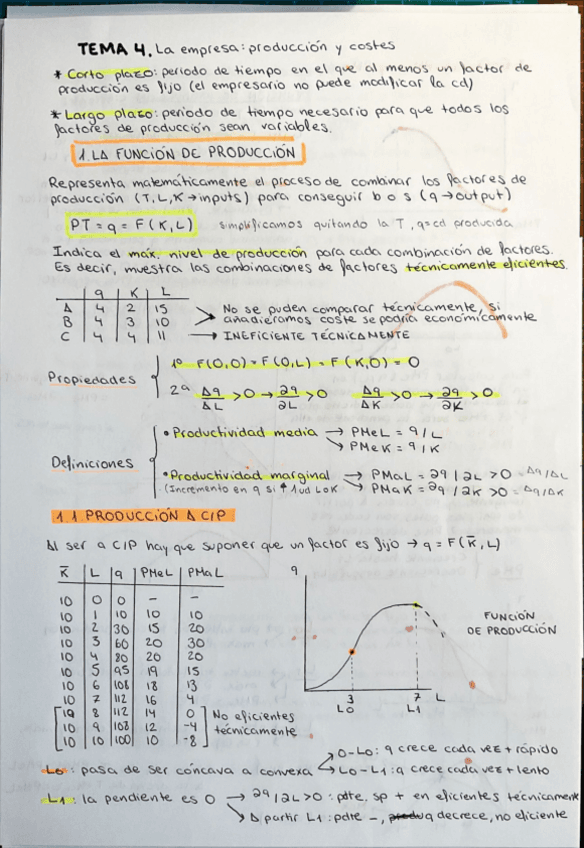 TEMA 4. La empresa: producción y costes
* Corto plazo: periodo de tiempo en el que al menos un factor de
producción es fijo (el empresario no puede modificar la cd)
* Largo plazo: periodo de tiempo necesario para que todos los
factores de producción sean variables.
1. LA FUNCIÓN DE PRODUCCIÓN
Representa matemáticamente el proceso de combinar los factores de
producción (T, L, K → inputs) para conseguir b o s (q → output)
PT = q = F(K, L) simplificamos quitando la T, q=cd producida
Indica el máx. nivel de producción para cada combinación de factores.
Es decir, muestra las combinaciones de factores técnicamente eficientes.
q K L
A 4 2 15
B 4 3 10
C 4 4 11
No se puden comparar técnicamente, si
añadieramos coste se podría económicamente
→ INEFICIENTE TÉCNICAMENTE
Propiedades
1º F(0,0) = F(0,L) = F(K,0) = 0
2ª Δq/ΔL >0 → ∂q/∂L >0 Δq/ΔK >0 → ∂q/∂K >0
Definiciones
• Productividad media → PMeL = q/L
→ PMeK = q/K
• Productividad marginal → PMaL = ∂q/∂L >0 = Δq/ΔL
(Incremento en q si ↑ 1ud L o K → PMaK = ∂q/∂K >0 = Δq/ΔK
1.1 PRODUCCIÓN A C/P
Al ser a C/P hay que suponer que un factor es fijo → q = F(K̄, L)
K̄ L q PMeL PMaL
10 0 0 - -
10 1 10 10 10
10 2 30 15 20
10 3 60 20 30
10 4 80 20 20
10 5 95 19 15
10 6 108 18 13
10 7 112 16 4
10 8 112 14 0
10 9 108 12 -4
10 10 100 10 -8
No eficientes
técnicamente
q
3 7 L
L0 L1
FUNCIÓN
DE PRODUCCIÓN
L0: pasa de ser cóncava a convexa → 0-L0: q crece cada vez + rápido
→ L0-L1: q crece cada vez + lento
L1: la pendiente es 0 → ∂q/∂L >0: pdte. sp + en eficientes técnicament
→ A partir L1: pdte -, q decrece, no eficiente